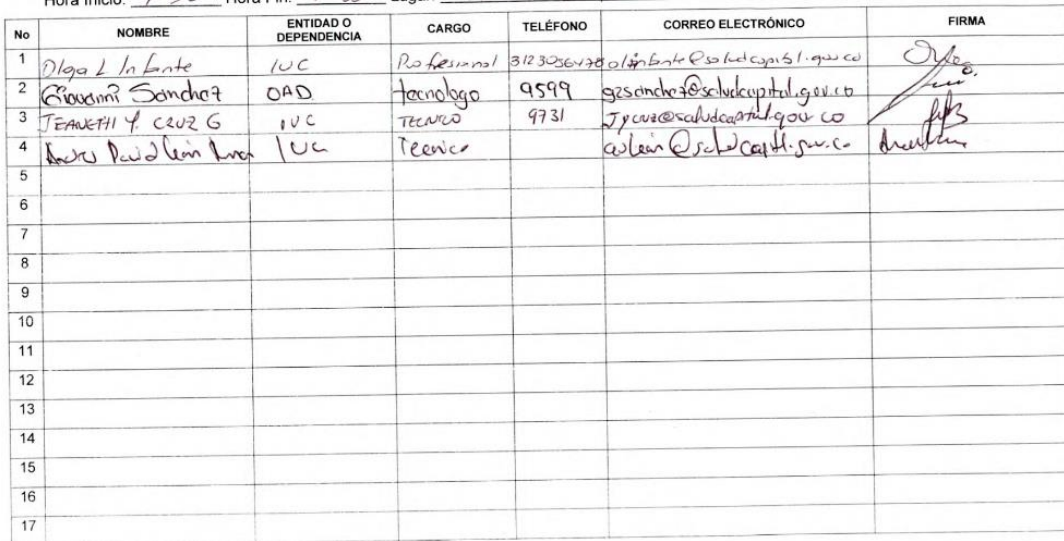 Hora Inicio: Hora Fin:
No NOMBRE ENTIDAD O DEPENDENCIA CARGO TELÉFONO CORREO ELECTRÓNICO FIRMA
1 Olga L Infante IVC Profesional 3123056478 olinfante@saludcapital.gov.co
2 Giovanni Sanchez OAD tecnologo 9599 g2sanchez@saludcapital.gov.co
3 JEANETH Y. CRUZ G IVC TECNICO 9731 Jycruz@saludcapital.gov.co
4 Andres David León IVC Tecnico @saludcapital.gov.co
5
6
7
8
9
10
11
12
13
14
15
16
17